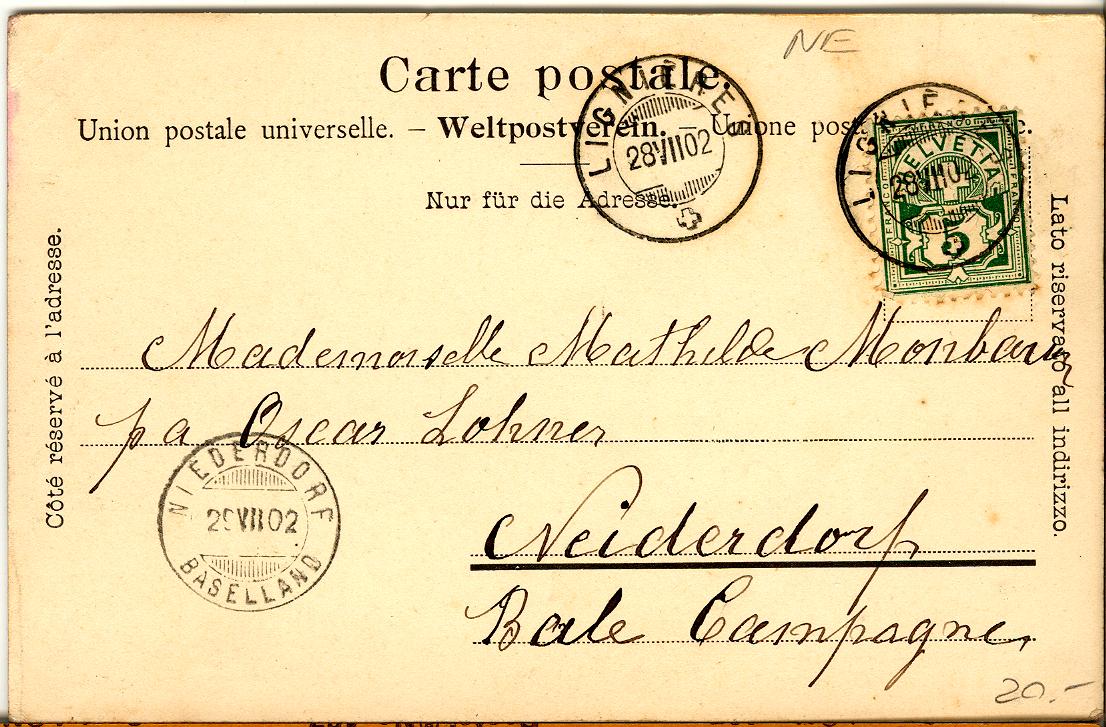 NE
Carte postale.
Union postale universelle. – Weltpostverein. – Unione post
Nur für die Adresse.
LIGNIÈRES
28 VII 02
LIGNIÈ
28 VII 02
HELVETIA
FRANCO
FRANCO
5
Côté réservé à l'adresse.
Lato riservato all indirizzo.
Mademoiselle Mathilde
pa Oscar Lohner
Neiderdorf
Bale Campagne,
NIEDERDORF
29 VII 02
BASELLAND
20.-